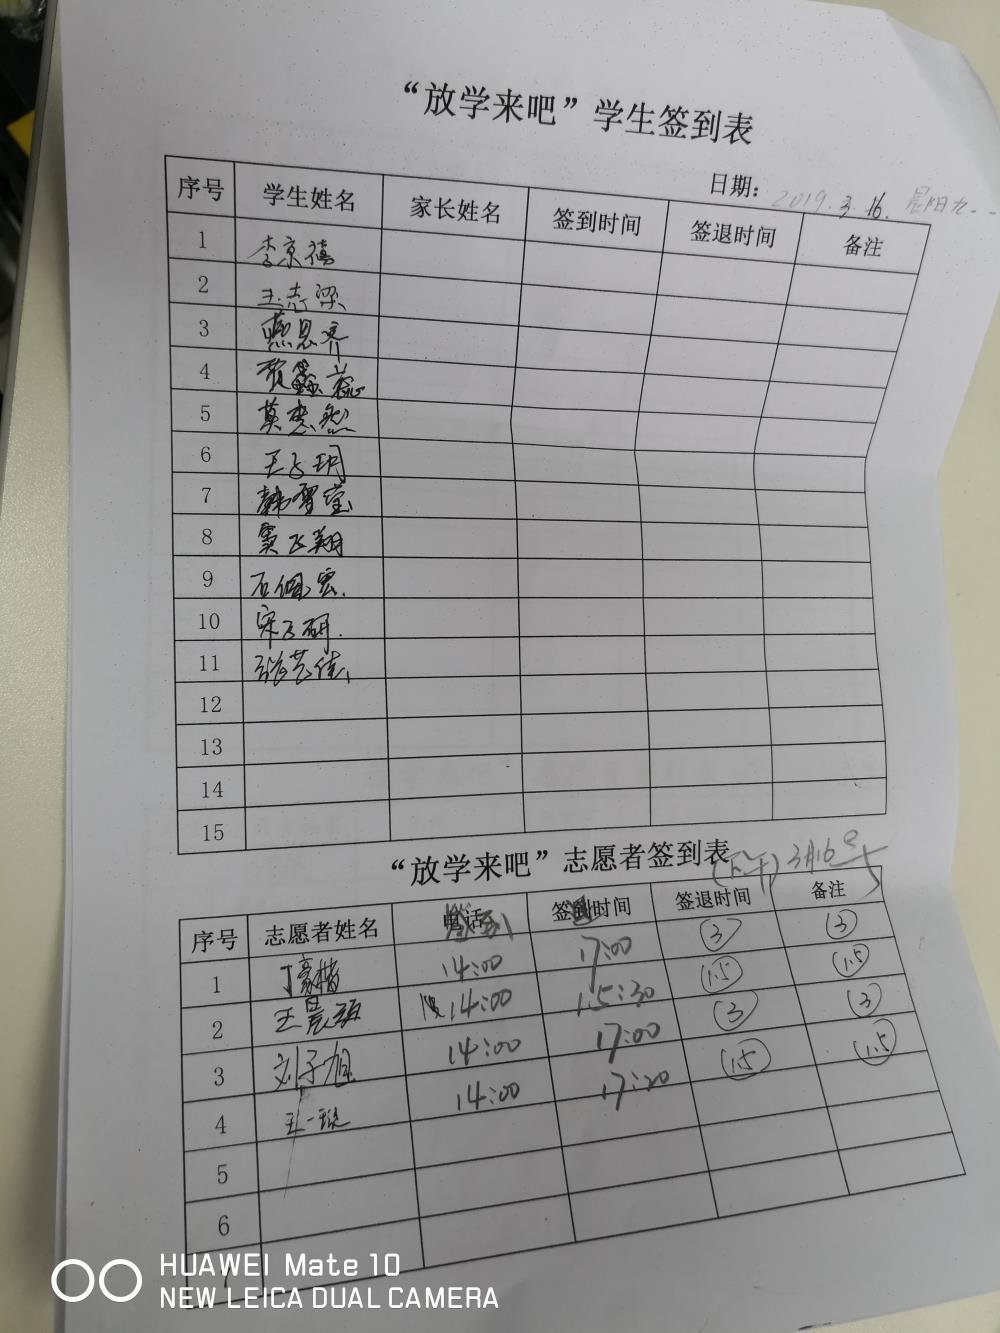 “放学来吧”学生签到表
日期：2019.3.16.
序号 学生姓名 家长姓名 签到时间 签退时间 备注
1 李京禧
2 王志梁
3
4
5
6 王子玥
7 韩雪莹
8 窦飞翔
9 石佩宏
10 宋飞研
11 张艺佳
12
13
14
15
“放学来吧”志愿者签到表
(下午) 3月16号
序号 志愿者姓名 签到 签退时间 签退时间 备注
1 丁豪楷 14:00 17:00 3 3
2 王晨 14:00 15:30 1.5 1.5
3 刘子旭 14:00 17:00 3 3
4 王一 14:00 17:20 1.5 1.5
5
6
7
HUAWEI Mate 10
NEW LEICA DUAL CAMERA